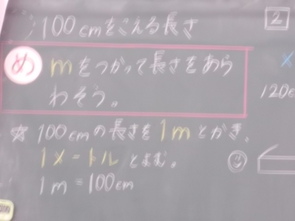 100cmをこえる長さ
2
め mをつかって長さをあら
わそう。
x
120c
☆ 100cmの長さを1mとかき、
1メートルとよむ。
②
1m=100cm